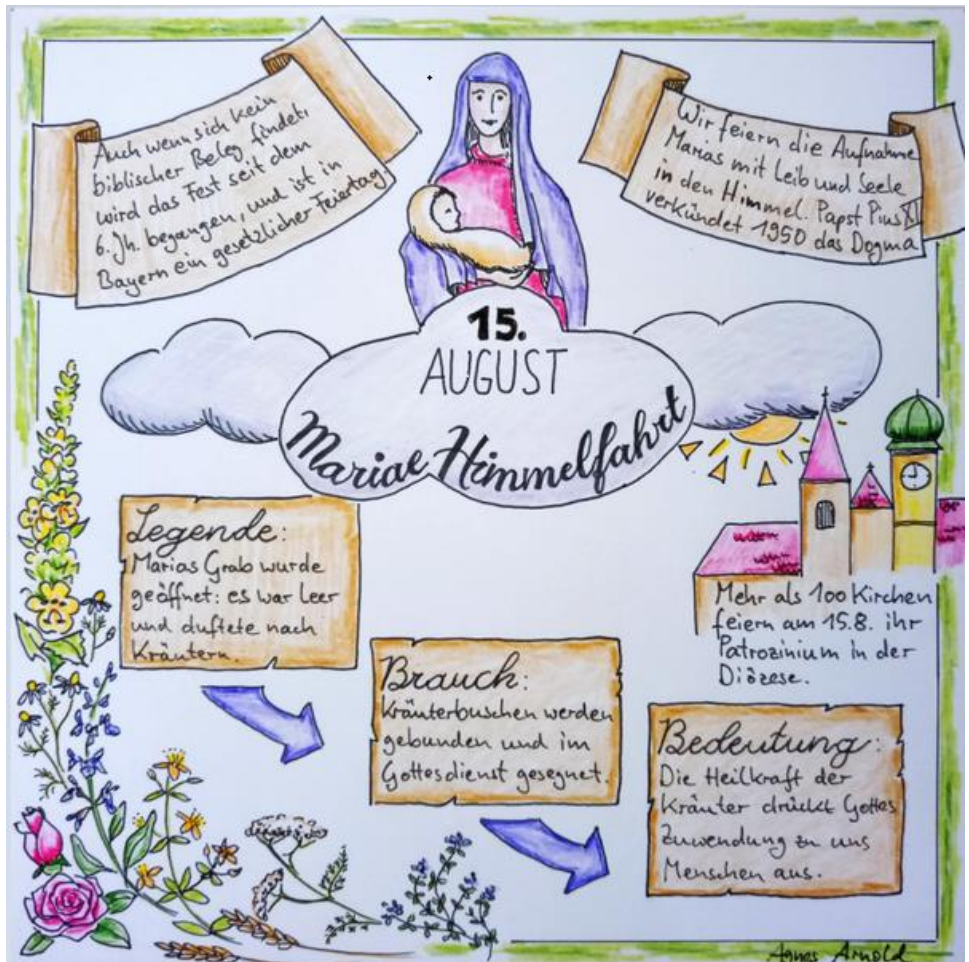 Auch wenn sich kein
biblischer Beleg findet,
wird das Fest seit dem
6. Jh. begangen, und ist in
Bayern ein gesetzlicher Feiertag
Wir feiern die Aufnahme
Marias mit Leib und Seele
in den Himmel. Papst Pius XI
verkündet 1950 das Dogma
15.
AUGUST
Mariae Himmelfahrt
Legende:
Marias Grab wurde
geöffnet: es war leer
und duftete nach
Kräutern.
Mehr als 100 Kirchen
feiern am 15.8. ihr
Patrozinium in der
Diözese.
Brauch:
Kräuterbuschen werden
gebunden und im
Gottesdienst gesegnet.
Bedeutung:
Die Heilkraft der
Kräuter drückt Gottes
Zuwendung zu uns
Menschen aus.
Agnes Arnold